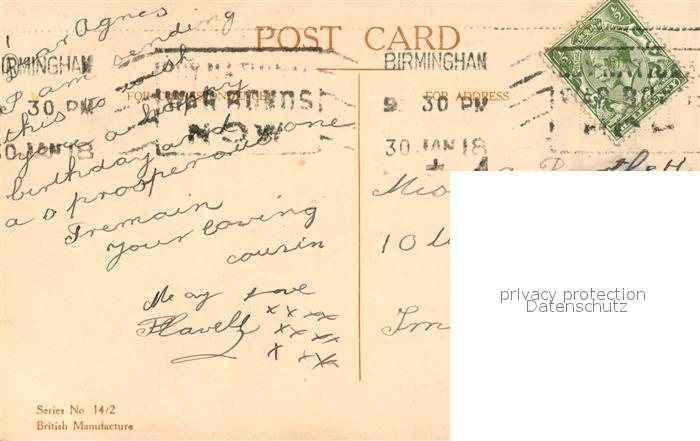 POST CARD
BIRMINGHAM
9 30 PM
30 JAN 18
BUY NATIONAL
WAR BONDS
NOW
FOR ADDRESS
Dear Agnes
I am sending
this to wish
you a happy
birthday and
as prosperous
I remain
your loving
cousin
Love
x x x x
x x x x
x x x
Miss
10
privacy protection
Datenschutz
Series No 14/2
British Manufacture